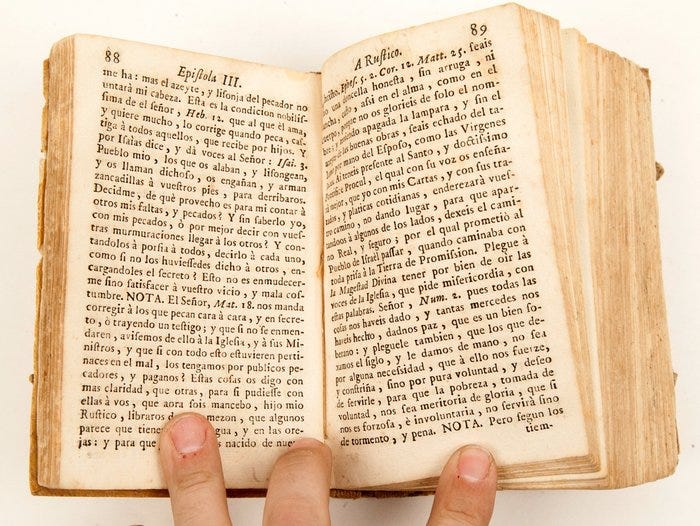 88
Epiſtola III.
me ha: mas el azeyte, y liſonja del pecador no
untarà mi cabeza. Eſta es la condicion nobiliſ-
ſima de el ſeñor, Heb. 12. que al que èl ama,
y quiere mucho, lo corrige quando peca, caſ-
tiga à todos aquellos, que recibe por hijos. Y
por Iſaìas dice, y dà voces al Señor: Iſai. 3.
Pueblo mio, los que os alaban, y liſongean,
y os llaman dichoſo, os engañan, y arman
zancadillas à vueſtros pies, para derribaros.
Decidme, de què provecho es para mi contar à
otros mis faltas, y pecados? Y ſin ſaberlo yo,
con mis pecados, ò por mejor decir con vueſ-
tras murmuraciones llegar à los otros? Y con-
tandolos à porfia à todos, decirlo à cada uno,
como ſi no los huvieſſedes dicho à otros, en-
cargandoles el ſecreto? Eſto no es enmudecer-
me ſino ſatisfacer à vueſtro vicio, y mala coſ-
tumbre. NOTA. El Señor, Mat. 18. nos manda
corregir à los que pecan cara à cara, y en ſecre-
to, ò trayendo un teſtigo; y que ſi no ſe enmen-
daren, aviſemos de ello à la Igleſia, y à ſus Mi-
niſtros, y que ſi con todo eſto eſtuvieren perti-
naces en el mal, los tengamos por publicos pe-
cadores, y paganos? Eſtas coſas os digo con
mas claridad, que otras, para ſi pudieſſe con
ellas à vos, que aora ſois mancebo, hijo mio
Ruſtico, libraros de mezon, que algunos
parece que tiene gua, y en las ore-
jas: y para que nacido de nue
89
A Ruſtico.
Epheſ. 5. 2. Cor. 12. Matt. 25. ſeais
una doncella honeſta, ſin arruga, ni
aſsi en el alma, como en el
porque no os glorieis de ſolo el nom-
apagada la lampara, y ſin el
las buenas obras, ſeais echado del ta-
por mano del Eſpoſo, como las Virgenes
Ai teneis preſente al Santo, y doctiſsimo
Procul, el qual con ſu voz os enſeña-
mejor, que yo con mis Cartas, y con ſus tra-
y platicas cotidianas, enderezarà vueſ-
tro camino, no dando lugar, para que apar-
tandoos à algunos de los lados, dexeis el cami-
no Real, y ſeguro; por el qual prometiò al
Pueblo de Iſraèl paſſar, quando caminaba con
toda priſa à la Tierra de Promiſsion. Plegue à
la Mageſtad Divina tener por bien de oir las
voces de la Igleſia, que pide miſericordia, con
eſtas palabras. Señor, Num. 2. pues todas las
coſas nos haveis dado, y tantas mercedes nos
haveis hecho, dadnos paz, que es un bien ſo-
berano: y pleguele tambien, que los que de-
xamos el ſiglo, y le damos de mano, no ſea
por alguna neceſsidad, que à ello nos fuerze,
y conſtriña, ſino por pura voluntad, y deſeo
de ſervirle, para que la pobreza, tomada de
voluntad, nos ſea meritoria de gloria, que ſi
nos es forzoſa, è involuntaria, no ſervirà ſino
de tormento, y pena. NOTA. Pero ſegun los
tiem-